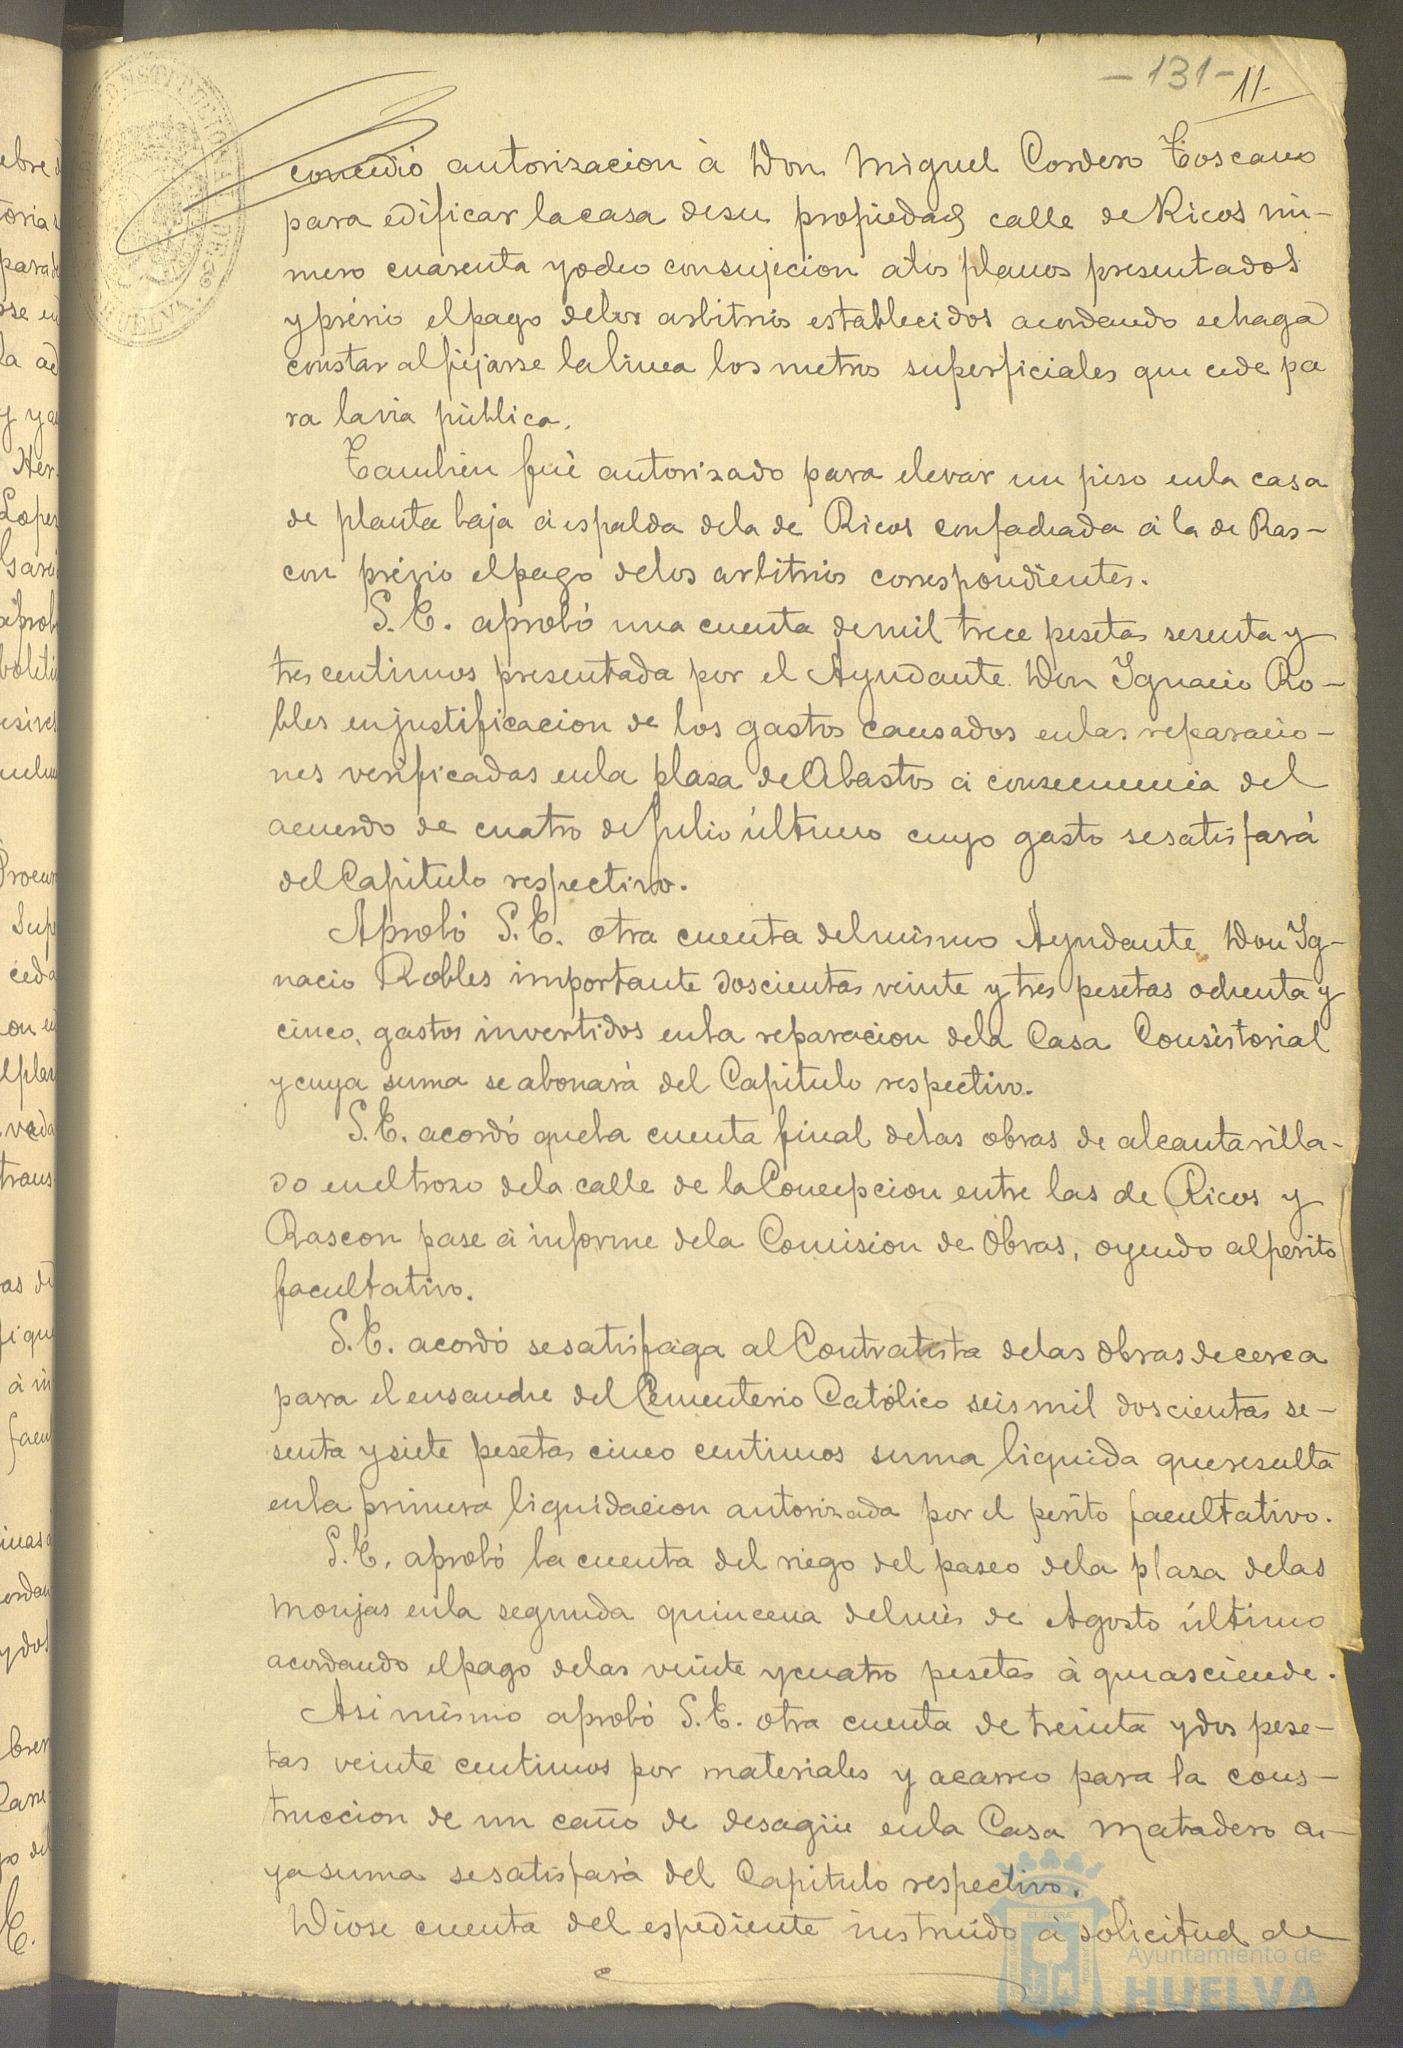 - 131 - 11-
concedió autorizacion à Don Miguel Cordero Toscano
para edificar la casa de su propiedad calle de Ricos nú-
mero cuarenta y ocho con sujecion a los planos presentados
y prévio el pago de los arbitrios establecidos acordando se haga
constar al fijarse la linea los metros superficiales que cede pa
ra la via pública.
Tambien fué autorizado para elevar un piso en la casa
de planta baja á espalda de la de Ricos con fachada á la de Ras-
con prévio el pago de los arbitrios correspondientes.
S. E. aprobó una cuenta de mil trece pesetas sesenta y
tres centimos presentada por el Ayudante Don Ignacio Ro-
bles en justificacion de los gastos causados en las reparacio-
nes verificadas en la plaza de Abastos á consecuencia del
acuerdo de cuatro de Julio último cuyo gasto se satisfará
del Capitulo respectivo.
Aprobó S. E. otra cuenta del mismo Ayudante Don Ig-
nacio Robles importante doscientas veinte y tres pesetas ochenta y
cinco, gastos invertidos en la reparacion de la Casa Consistorial
y cuya suma se abonará del Capitulo respectivo.
S. E. acordó que la cuenta final de las obras de alcantarilla-
do en el trozo de la calle de la Concepcion entre las de Ricos y
Rascon pase á informe de la Comision de Obras, oyendo al perito
facultativo.
S. E. acordó se satisfaga al Contratista de las obras de cerca
para el ensanche del Cementerio Católico seis mil doscientas se-
senta y siete pesetas cinco centimos suma liquida que resulta
en la primera liquidacion autorizada por el perito facultativo.
S. E. aprobó la cuenta del riego del paseo de la plaza de las
Monjas en la segunda quincena del mes de Agosto último
acordando el pago de las veinte y cuatro pesetas à que asciende.
Asi mismo aprobó S. E. otra cuenta de treinta y dos pese-
tas veinte centimos por materiales y acarreo para la cons-
truccion de un caño de desagüe en la Casa Matadero cu-
ya suma se satisfará del Capitulo respectivo.
Diose cuenta del espediente instruido á solicitud de
Ayuntamiento de
HUELVA